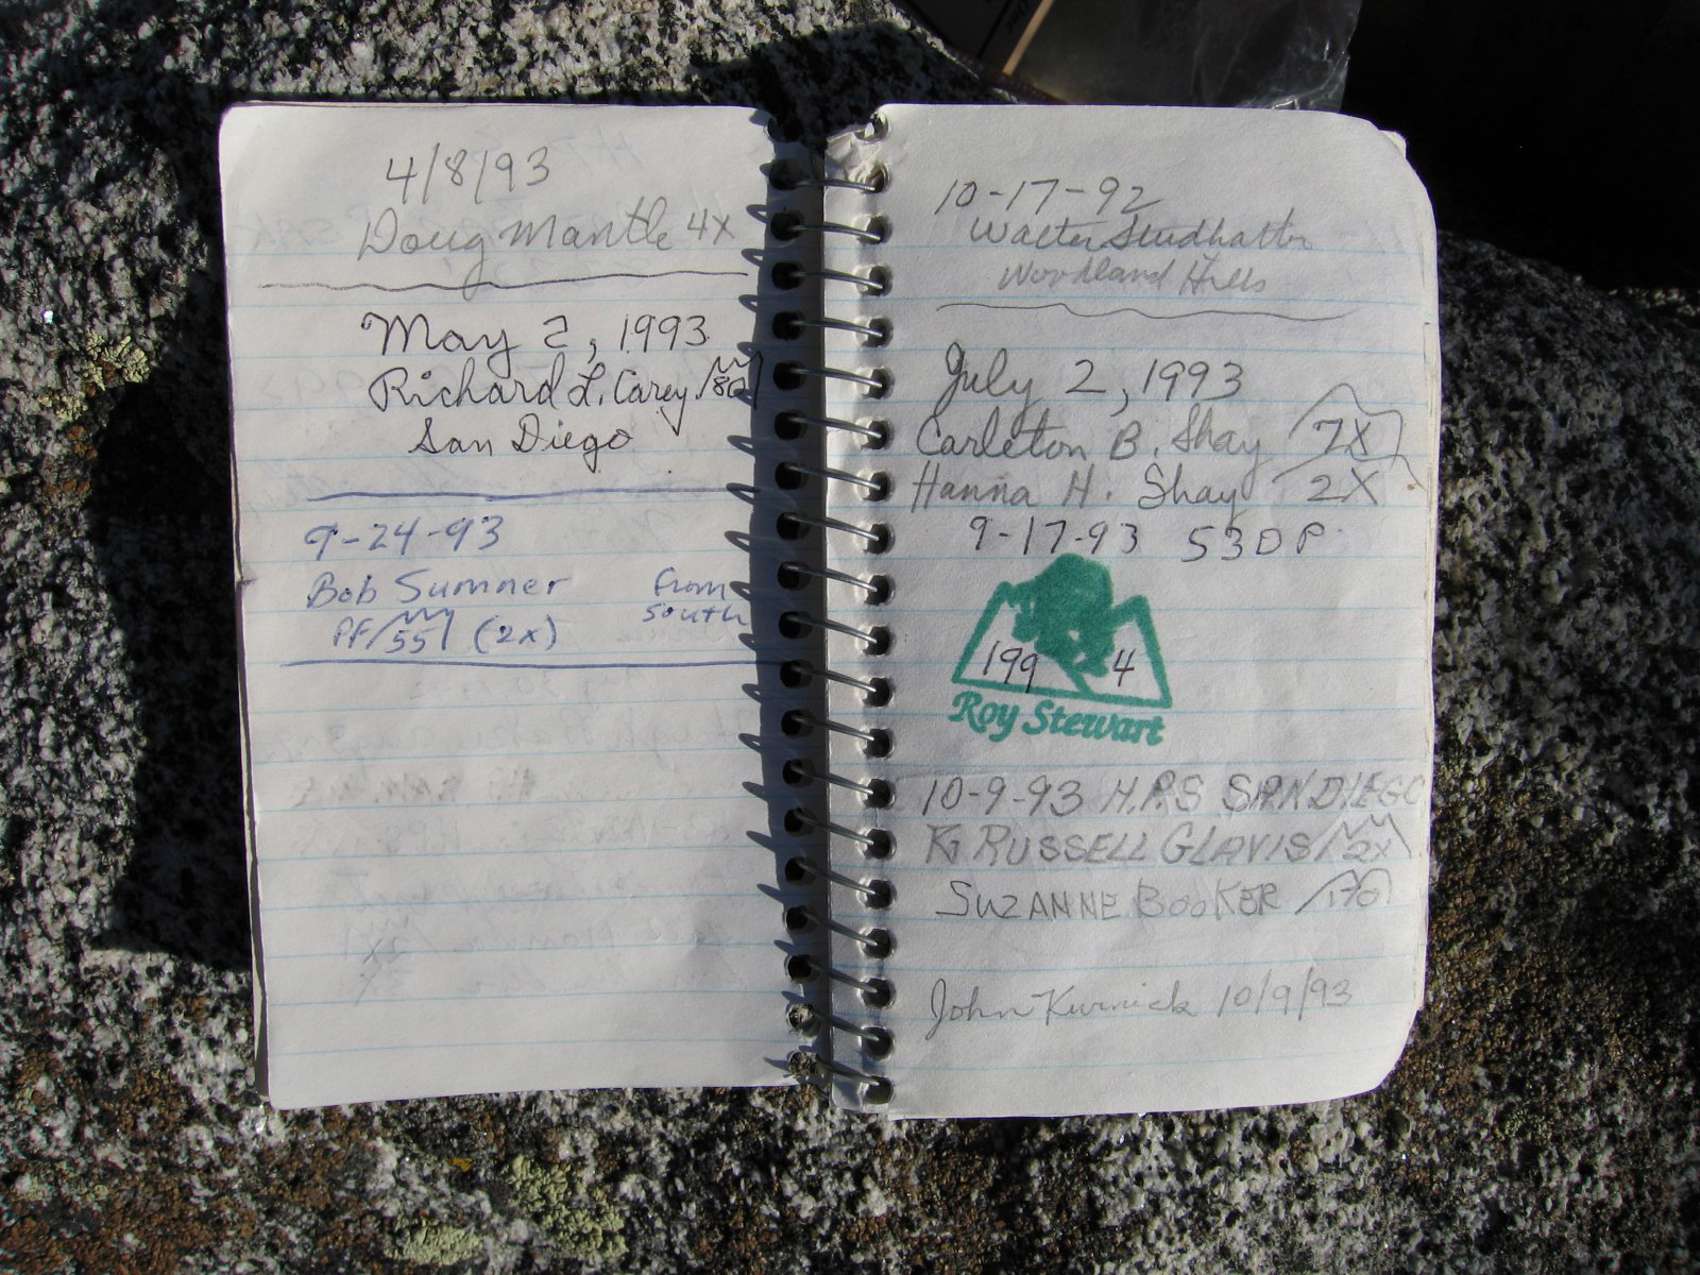 4/8/93
Doug Mantle 4X
May 2, 1993
Richard L. Carey 80
San Diego
9-24-93
Bob Sumner from
south
PF 55 (2x)
10-17-92
Walter
Woodland Hills
July 2, 1993
Carleton B. Shay 7X
Hanna H. Shay 2X
9-17-93 53 D P
199 4
Roy Stewart
10-9-93 H.P.S. SAN DIEGO
RUSSELL GLAVIS 2x
SUZANNE BOOKER
John Kurnick 10/9/93